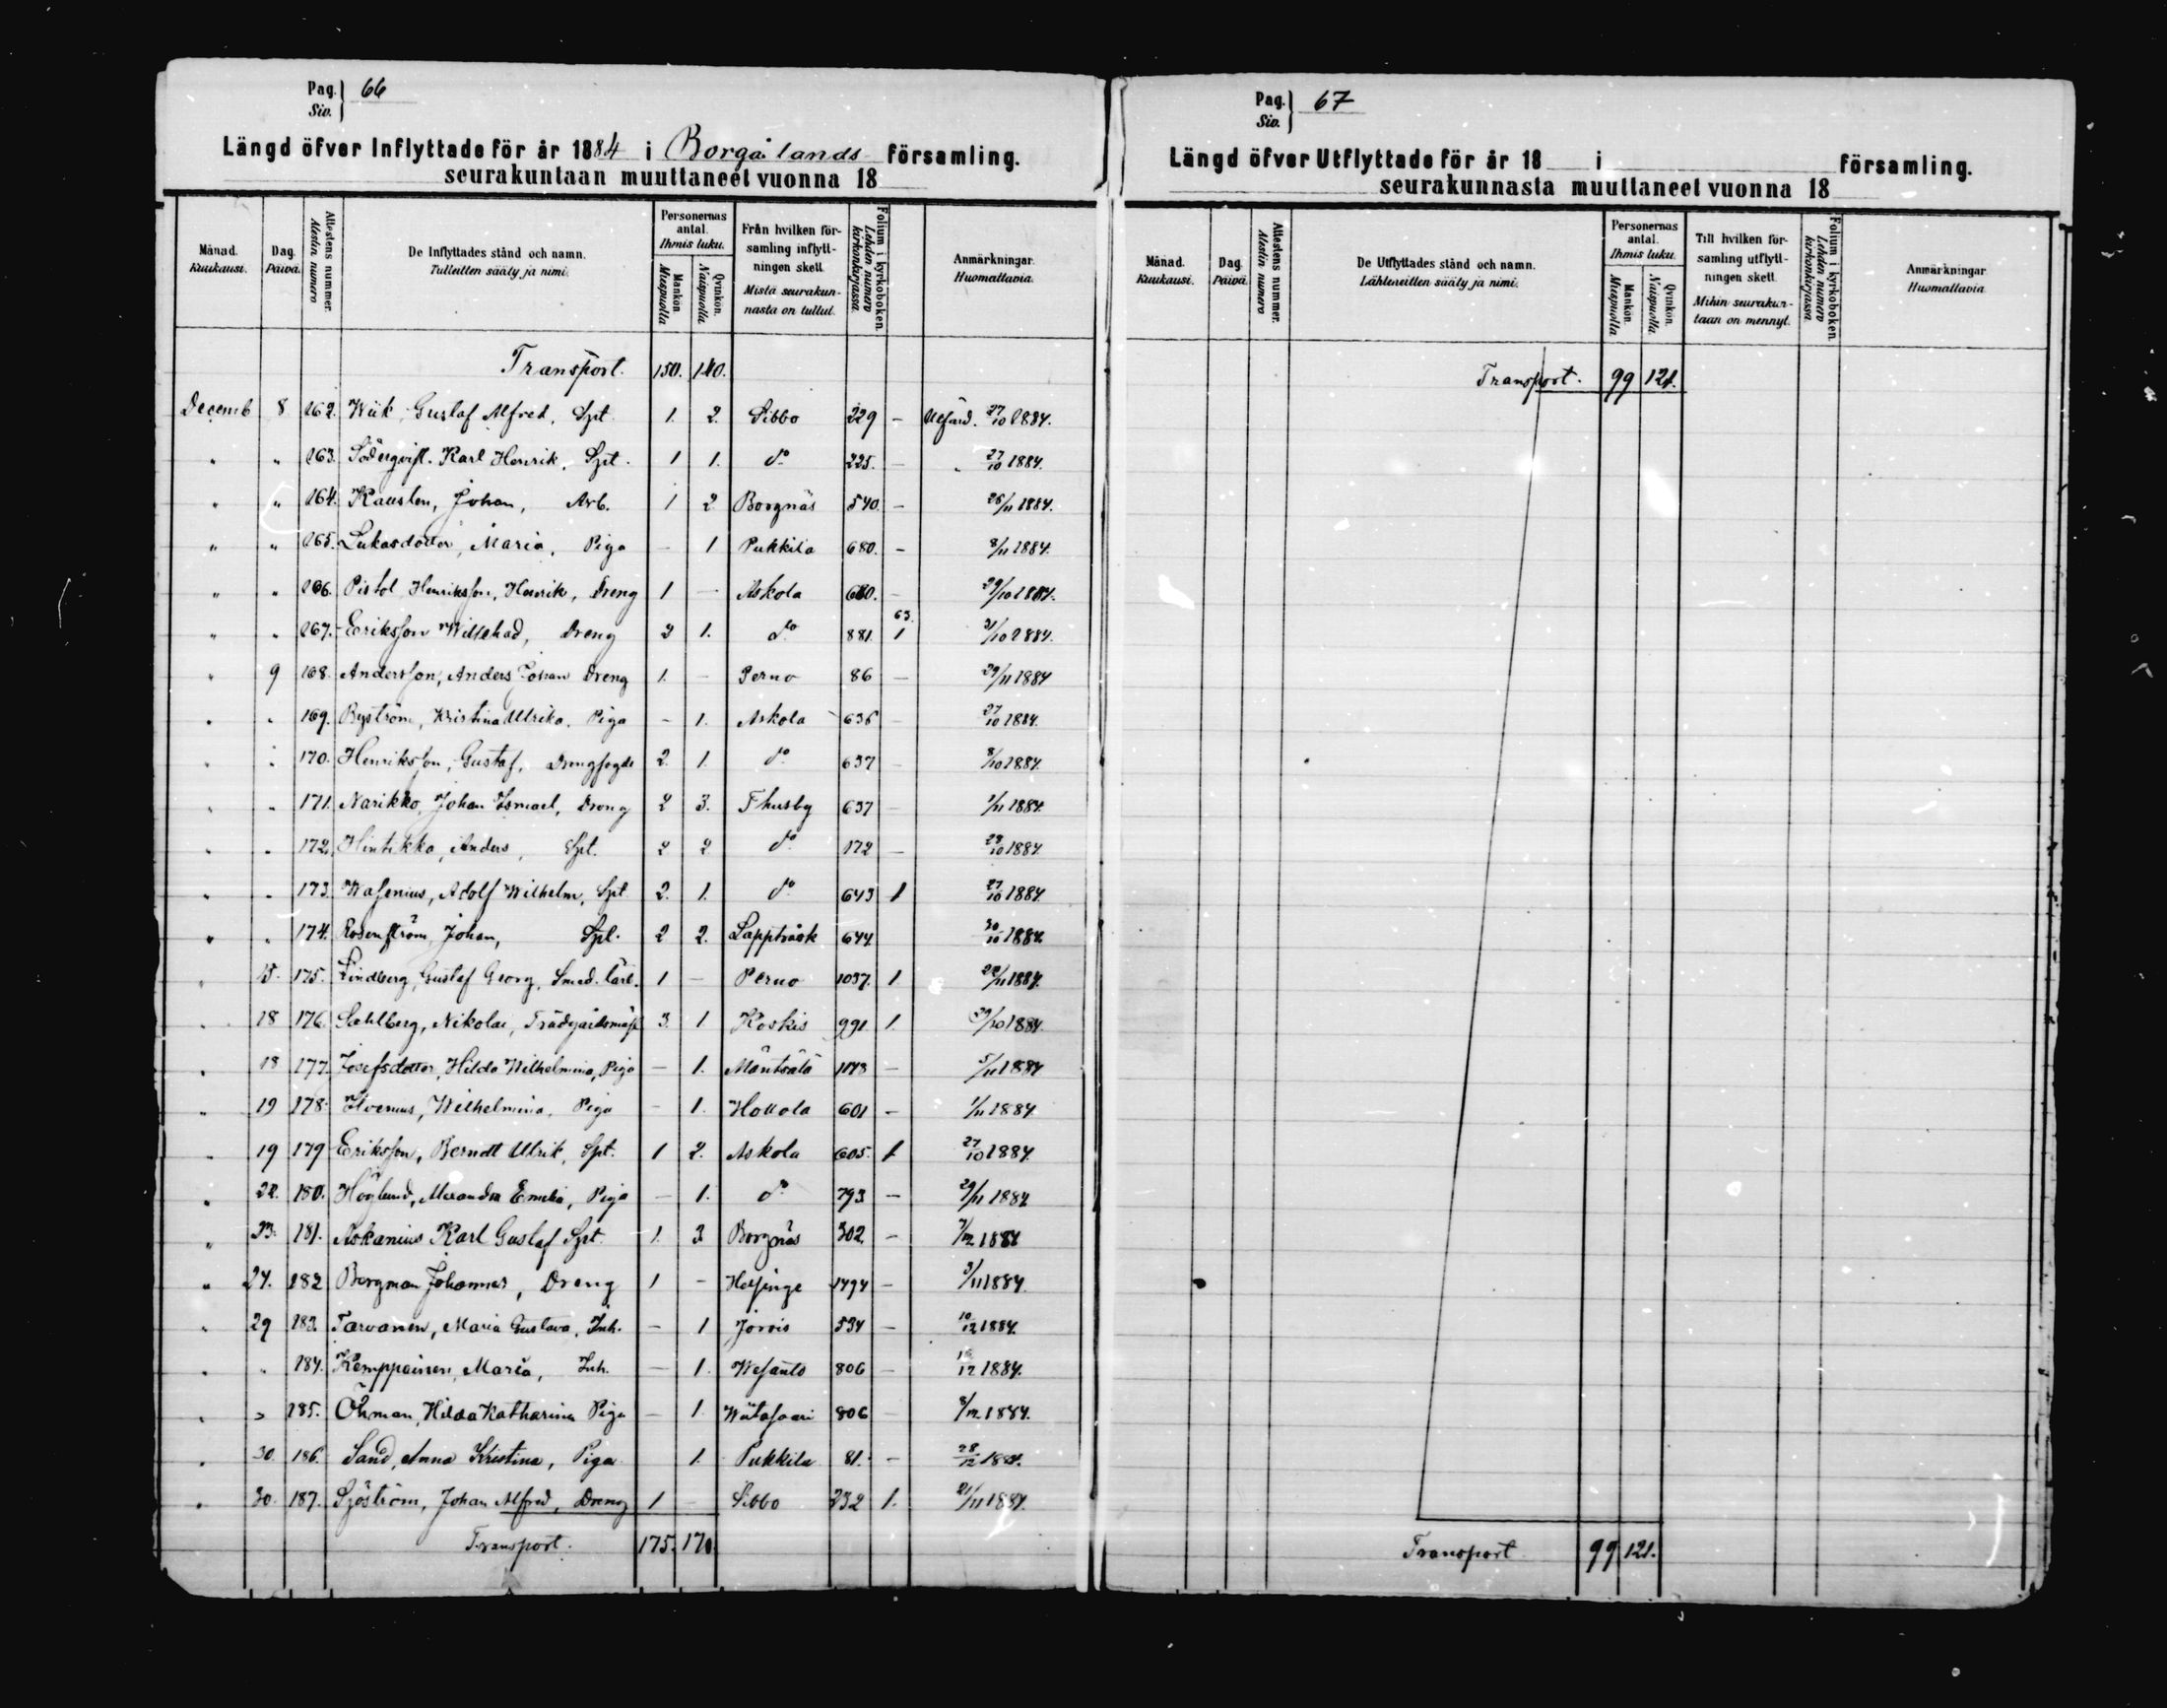 Pag. Siv. 66
Längd öfver Inflyttade för år 1884 i Borgå lands församling.
seurakuntaan muuttaneet vuonna 18
Månad. Kuukausi. | Dag. Päivä. | Attestens nummer. Alestin numero | De Inflyttades stånd och namn. Tulleitten sääty ja nimi. | Personernas antal. Ihmis luku. Mankön. Miespuolia | Qvinkön. Naispuolia | Från hvilken församling inflyttningen skett. Mistä seurakunnasta on tullut. | Folium i kyrkoboken. Lehden numero kirkonkirjassa. | Anmärkningar. Huomattavia.
Transport. 150. 140.
Decemb 8 162. Wiik, Gustaf Alfred, Spt. 1. 2. Sibbo 229 – 27/10 1884.
" " 163. Söderqvist, Karl Henrik, Spt. 1 1. do 225. – 27/10 1884.
" " 164. Kausten, Johan, Arb. 1 2 Borgnäs 540. – 26/11 1884.
" " 165. Lukasdotter, Maria, Piga – 1 Pukkila 680. – 8/11 1884.
" " 166. Pistol Henriksson, Henrik, Dreng 1 – Askola 680. – 29/10 1884.
" " 167. Eriksson Willehad, Dreng 2 1. do 881. 63. 1 31/10 1884.
" 9 168. Andersson, Anders Johan Dreng 1. – Perno 86 – 29/11 1884
" " 169. Byström, Kristina Ulrika. Piga – 1. Askola 636 – 27/10 1884.
" " 170. Henriksson, Gustaf, Drengfogde 2. 1. do 637 – 8/10 1884.
" " 171. Narikko, Johan Ismael, Dreng 2 3. Thusby 637 – 1/11 1884.
" " 172. Hintikka, Anders, Spt. 2 2 do 172 – 28/10 1884.
" " 173. Wasenius, Adolf Wilhelm, Spt 2. 1. do 643 1 27/10 1884.
" " 174. Rosenström, Johan, Spt. 2 2. Lappträsk 644 30/10 1884.
" 15. 175. Lindberg, Gustaf Georg, Smed. 1 – Perno 1037. 1 1884.
" 18 176. Sahlberg, Nikolai, 3. 1 Koskis 991 1. 29/10 1884.
" 18 177. Josefsdotter, Hilda Wilhelmina, Piga – 1. Mäntsälä 1173 – 5/11 1884
" 19 178. Wilhelmina, Piga – 1. Hollola 601 – 1/11 1884.
" 19 179 Eriksson, Berndt Ulrik, Spt. 1 2. Askola 605. 1. 27/10 1884.
" 22. 180. Höglund, Alexandra Emilia, Piga – 1. do 793 – 29/11 1884
" 23. 181. Askanius Karl Gustaf Spt. 1. 3 Borgnäs 302. – 7/12 1884
" 24. 182 Bergman Johannes, Dreng 1 – Helsinge 1494 – 3/11 1884.
" 29 183. Tarvanen, Maria Gustava, Inh. – 1 Jorois 534 – 10/12 1884.
" " 184. Kemppainen, Maria, Inh. – 1. Wesanto 806 – 12 1884.
" " 185. Öhman, Hilda Katharina Piga – 1. Wiitasaari 806 8/12 1884.
" 30. 186. Sand, Anna Kristina, Piga 1. Pukkila 81. – 28/12 1884.
" 30. 187. Sjöström, Johan Alfred, Dreng 1 – Sibbo 232 1. 21/11 1884.
Transport. 175. 170.
Pag. Siv. 67
Längd öfver Utflyttade för år 18 i församling.
seurakunnasta muuttaneet vuonna 18
Månad. Kuukausi. | Dag. Päivä. | Attestens nummer. Alestin numero | De Utflyttades stånd och namn. Lähteneitten sääty ja nimi. | Personernas antal. Ihmis luku. Mankön. Miespuolia | Qvinkön. Naispuolia | Till hvilken församling utflyttningen skett. Mihin seurakuntaan on mennyt. | Folium i kyrkoboken. Lehden numero kirkonkirjassa | Anmärkningar. Huomattavia
Transport. 99 121.
Transport 99 121.